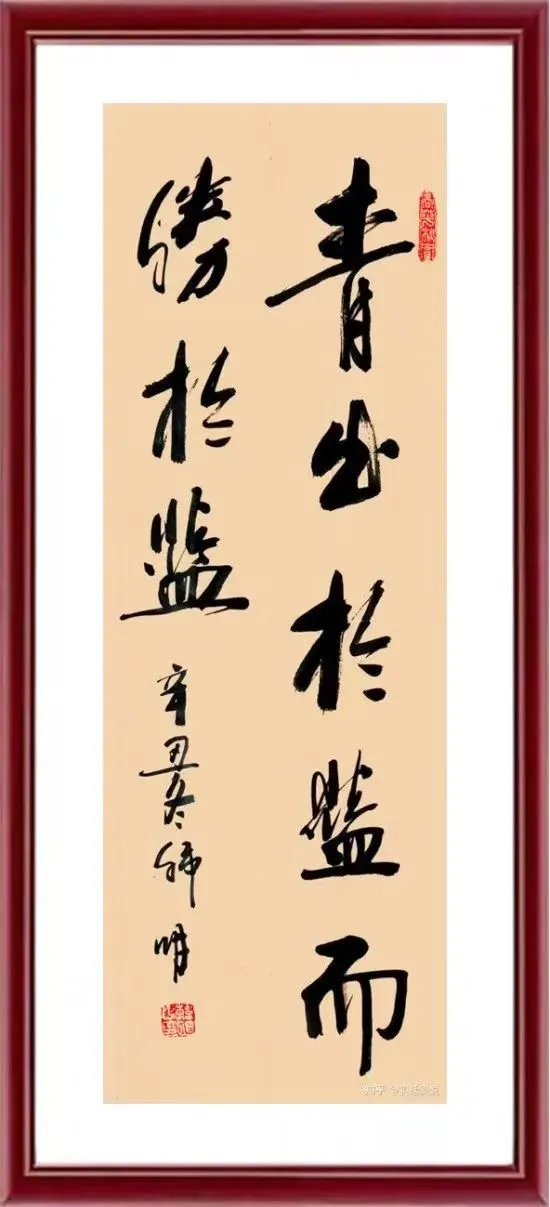 青出於藍而
勝於藍
辛丑冬 明
知乎